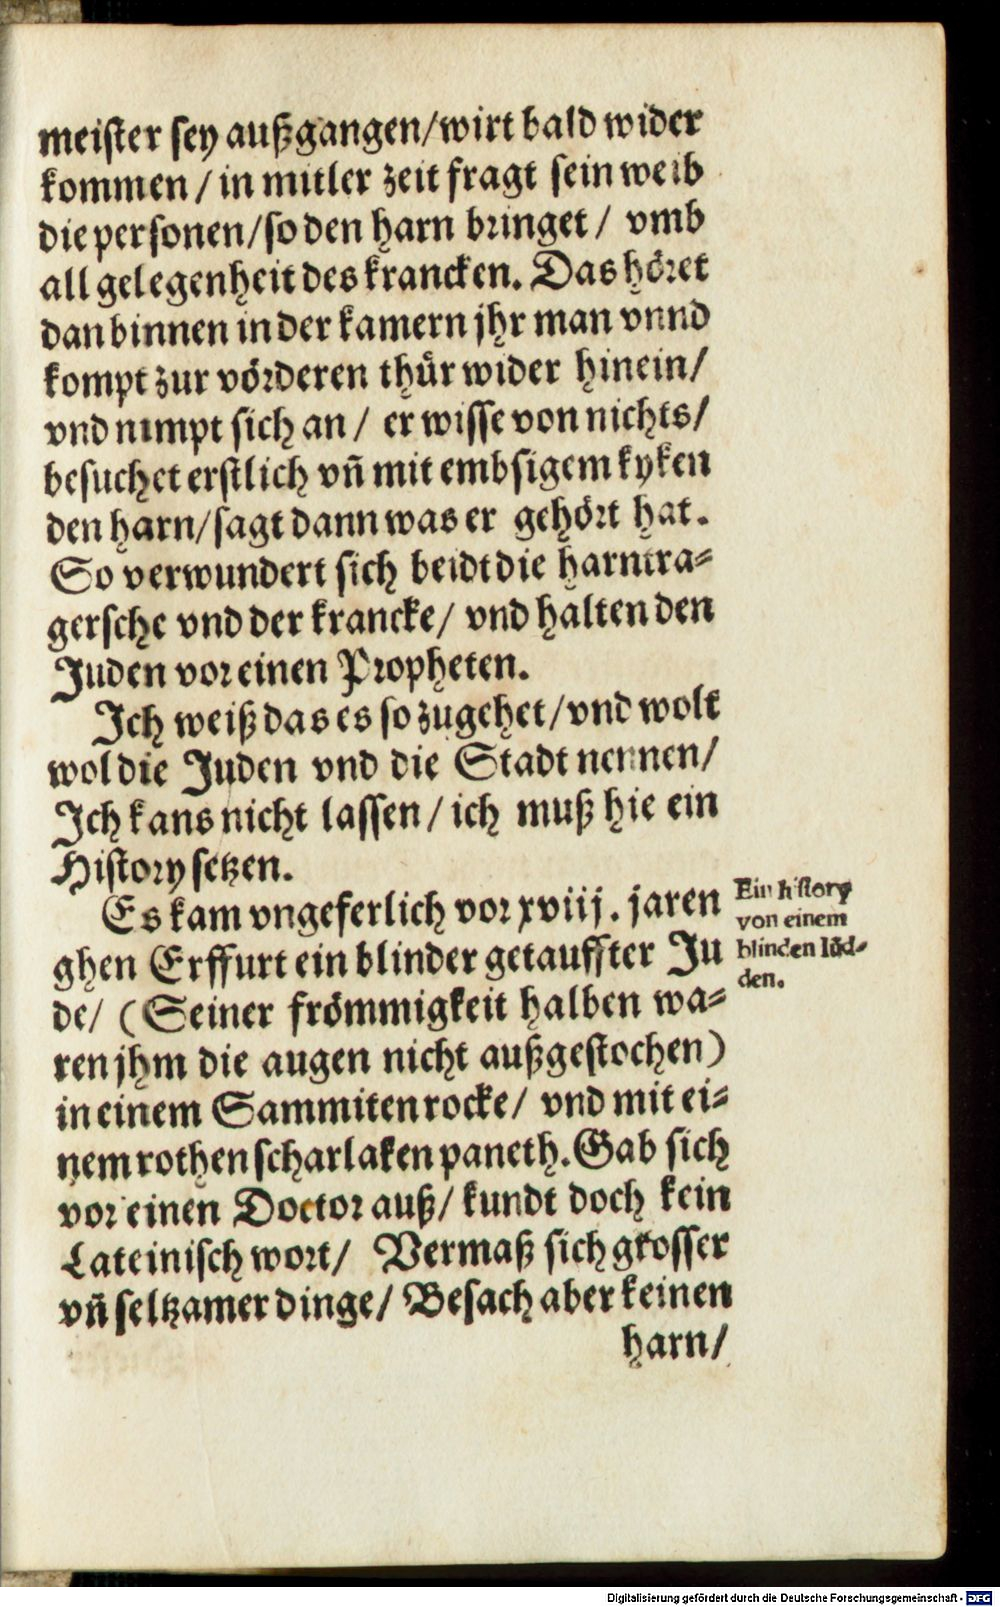 meister sey außgangen/wirt bald wider
kommen / in mitler zeit fragt sein weib
die personen/so den harn bringet / vmb
all gelegenheit des krancken. Das höret
dan binnen in der kamern jhr man vnnd
kompt zur vörderen thür wider hinein/
vnd nimpt sich an / er wisse von nichts/
besuchet erstlich vn̄ mit embsigem kyken
den harn/sagt dann was er gehört hat.
So verwundert sich beidt die harntra-
gersche vnd der krancke/ vnd halten den
Juden vor einen Propheten.
Ich weiß das es so zugehet/vnd wolt
wol die Juden vnd die Stadt nennen/
Ich kans nicht lassen/ ich muß hie ein
History setzen.
Es kam vngeferlich vor xviij. jaren
ghen Erffurt ein blinder getauffter Ju
de/ (Seiner frömmigkeit halben wa-
ren jhm die augen nicht außgestochen)
in einem Sammiten rocke/ vnd mit ei-
nem rothen scharlaken paneth. Gab sich
vor einen Doctor auß/ kundt doch kein
Lateinisch wort/ Vermaß sich grosser
vn̄ seltzamer dinge/ Besach aber keinen
harn/
Ein history
von einem
blinden
den.
Digitalisierung gefördert durch die Deutsche Forschungsgemeinschaft - DFG